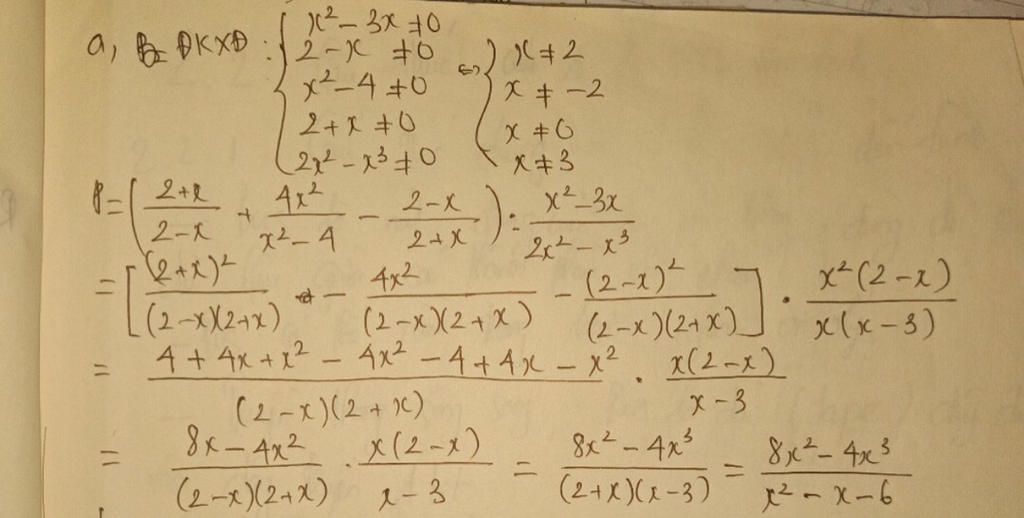 a, B= ĐKXĐ: { x² - 3x ≠ 0
2 - x ≠ 0
x² - 4 ≠ 0
2 + x ≠ 0
2x² - x³ ≠ 0
⇔ { x ≠ 2
x ≠ -2
x ≠ 0
x ≠ 3
P = ( (2+x)/(2-x) + 4x²/(x²-4) - (2-x)/(2+x) ) : (x²-3x)/(2x²-x³)
= [ (2+x)²/((2-x)(2+x)) - 4x²/((2-x)(2+x)) - (2-x)²/((2-x)(2+x)) ] . x²(2-x)/(x(x-3))
= (4 + 4x + x² - 4x² - 4 + 4x - x²)/((2-x)(2+x)) . x(2-x)/(x-3)
= (8x - 4x²)/((2-x)(2+x)) . x(2-x)/(x-3) = (8x² - 4x³)/((2+x)(x-3)) = (8x² - 4x³)/(x² - x - 6)